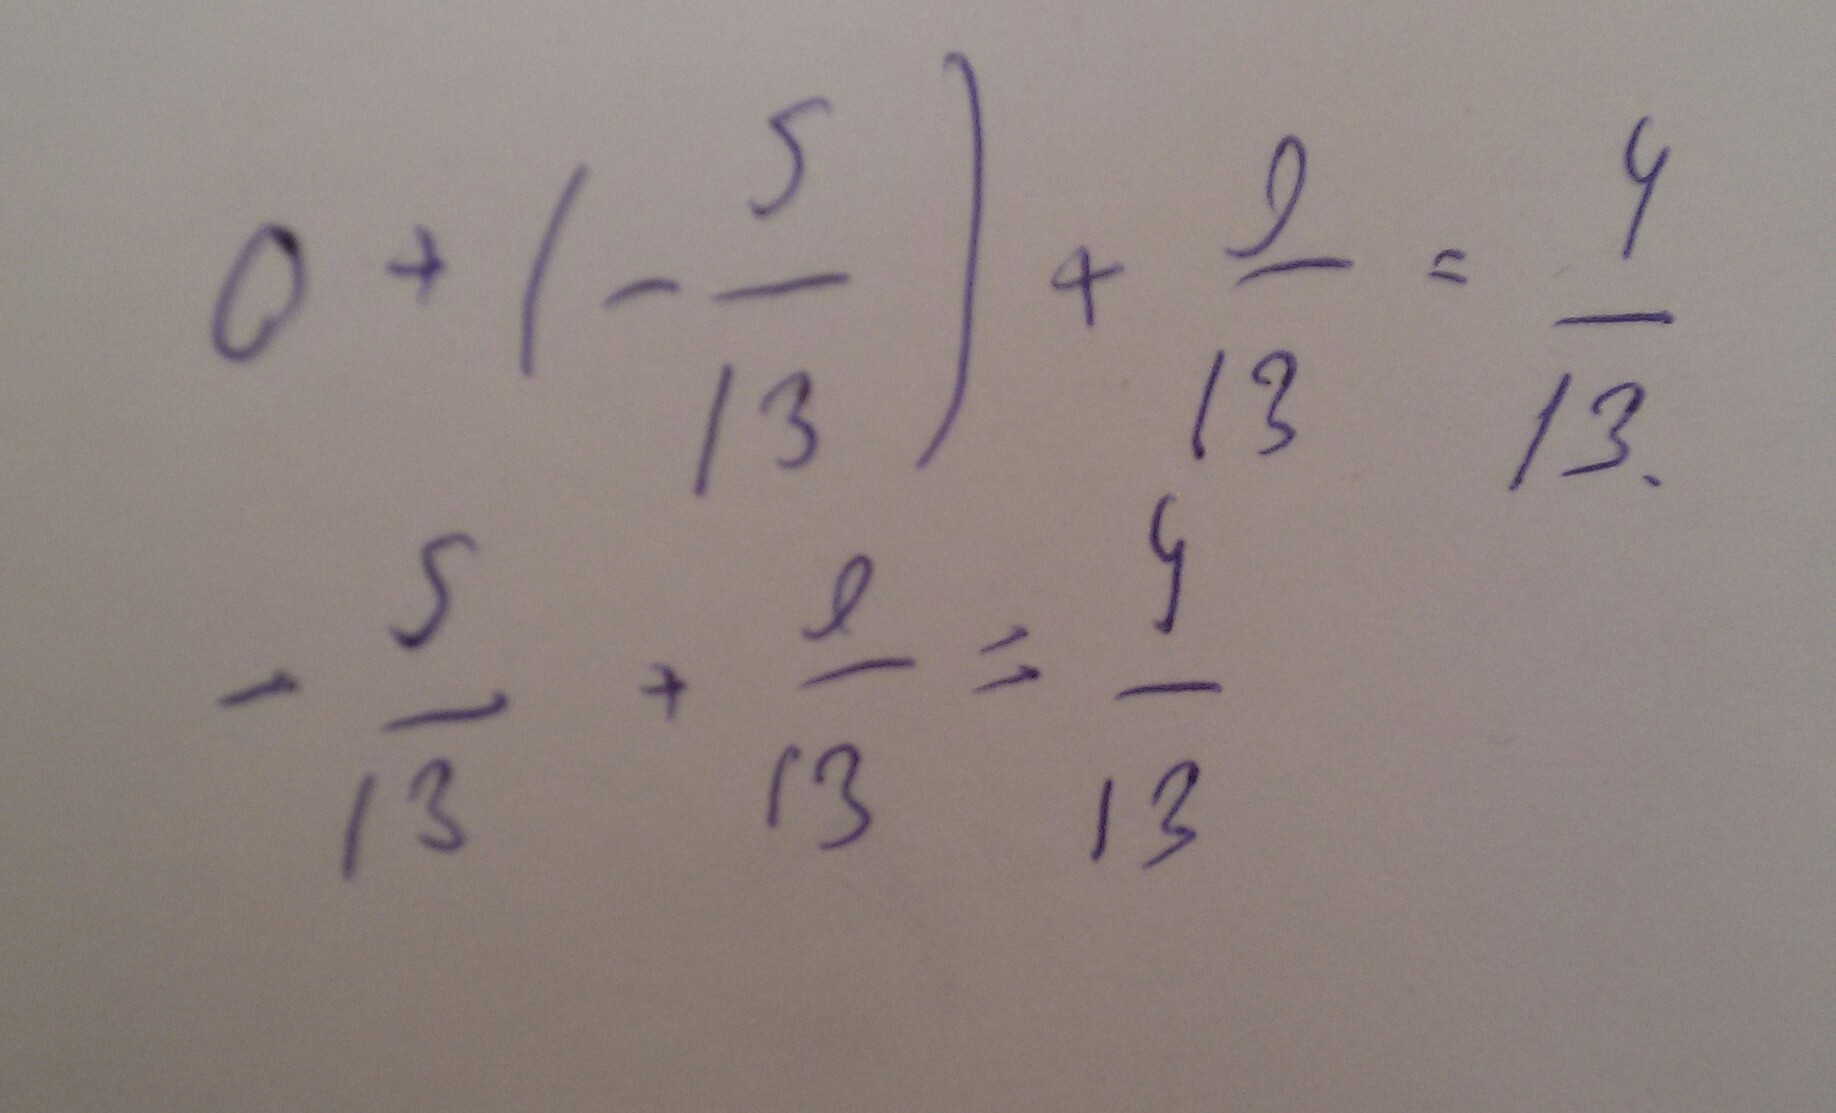 0 + (- 5/13) + 9/13 = 4/13.
- 5/13 + 9/13 = 4/13